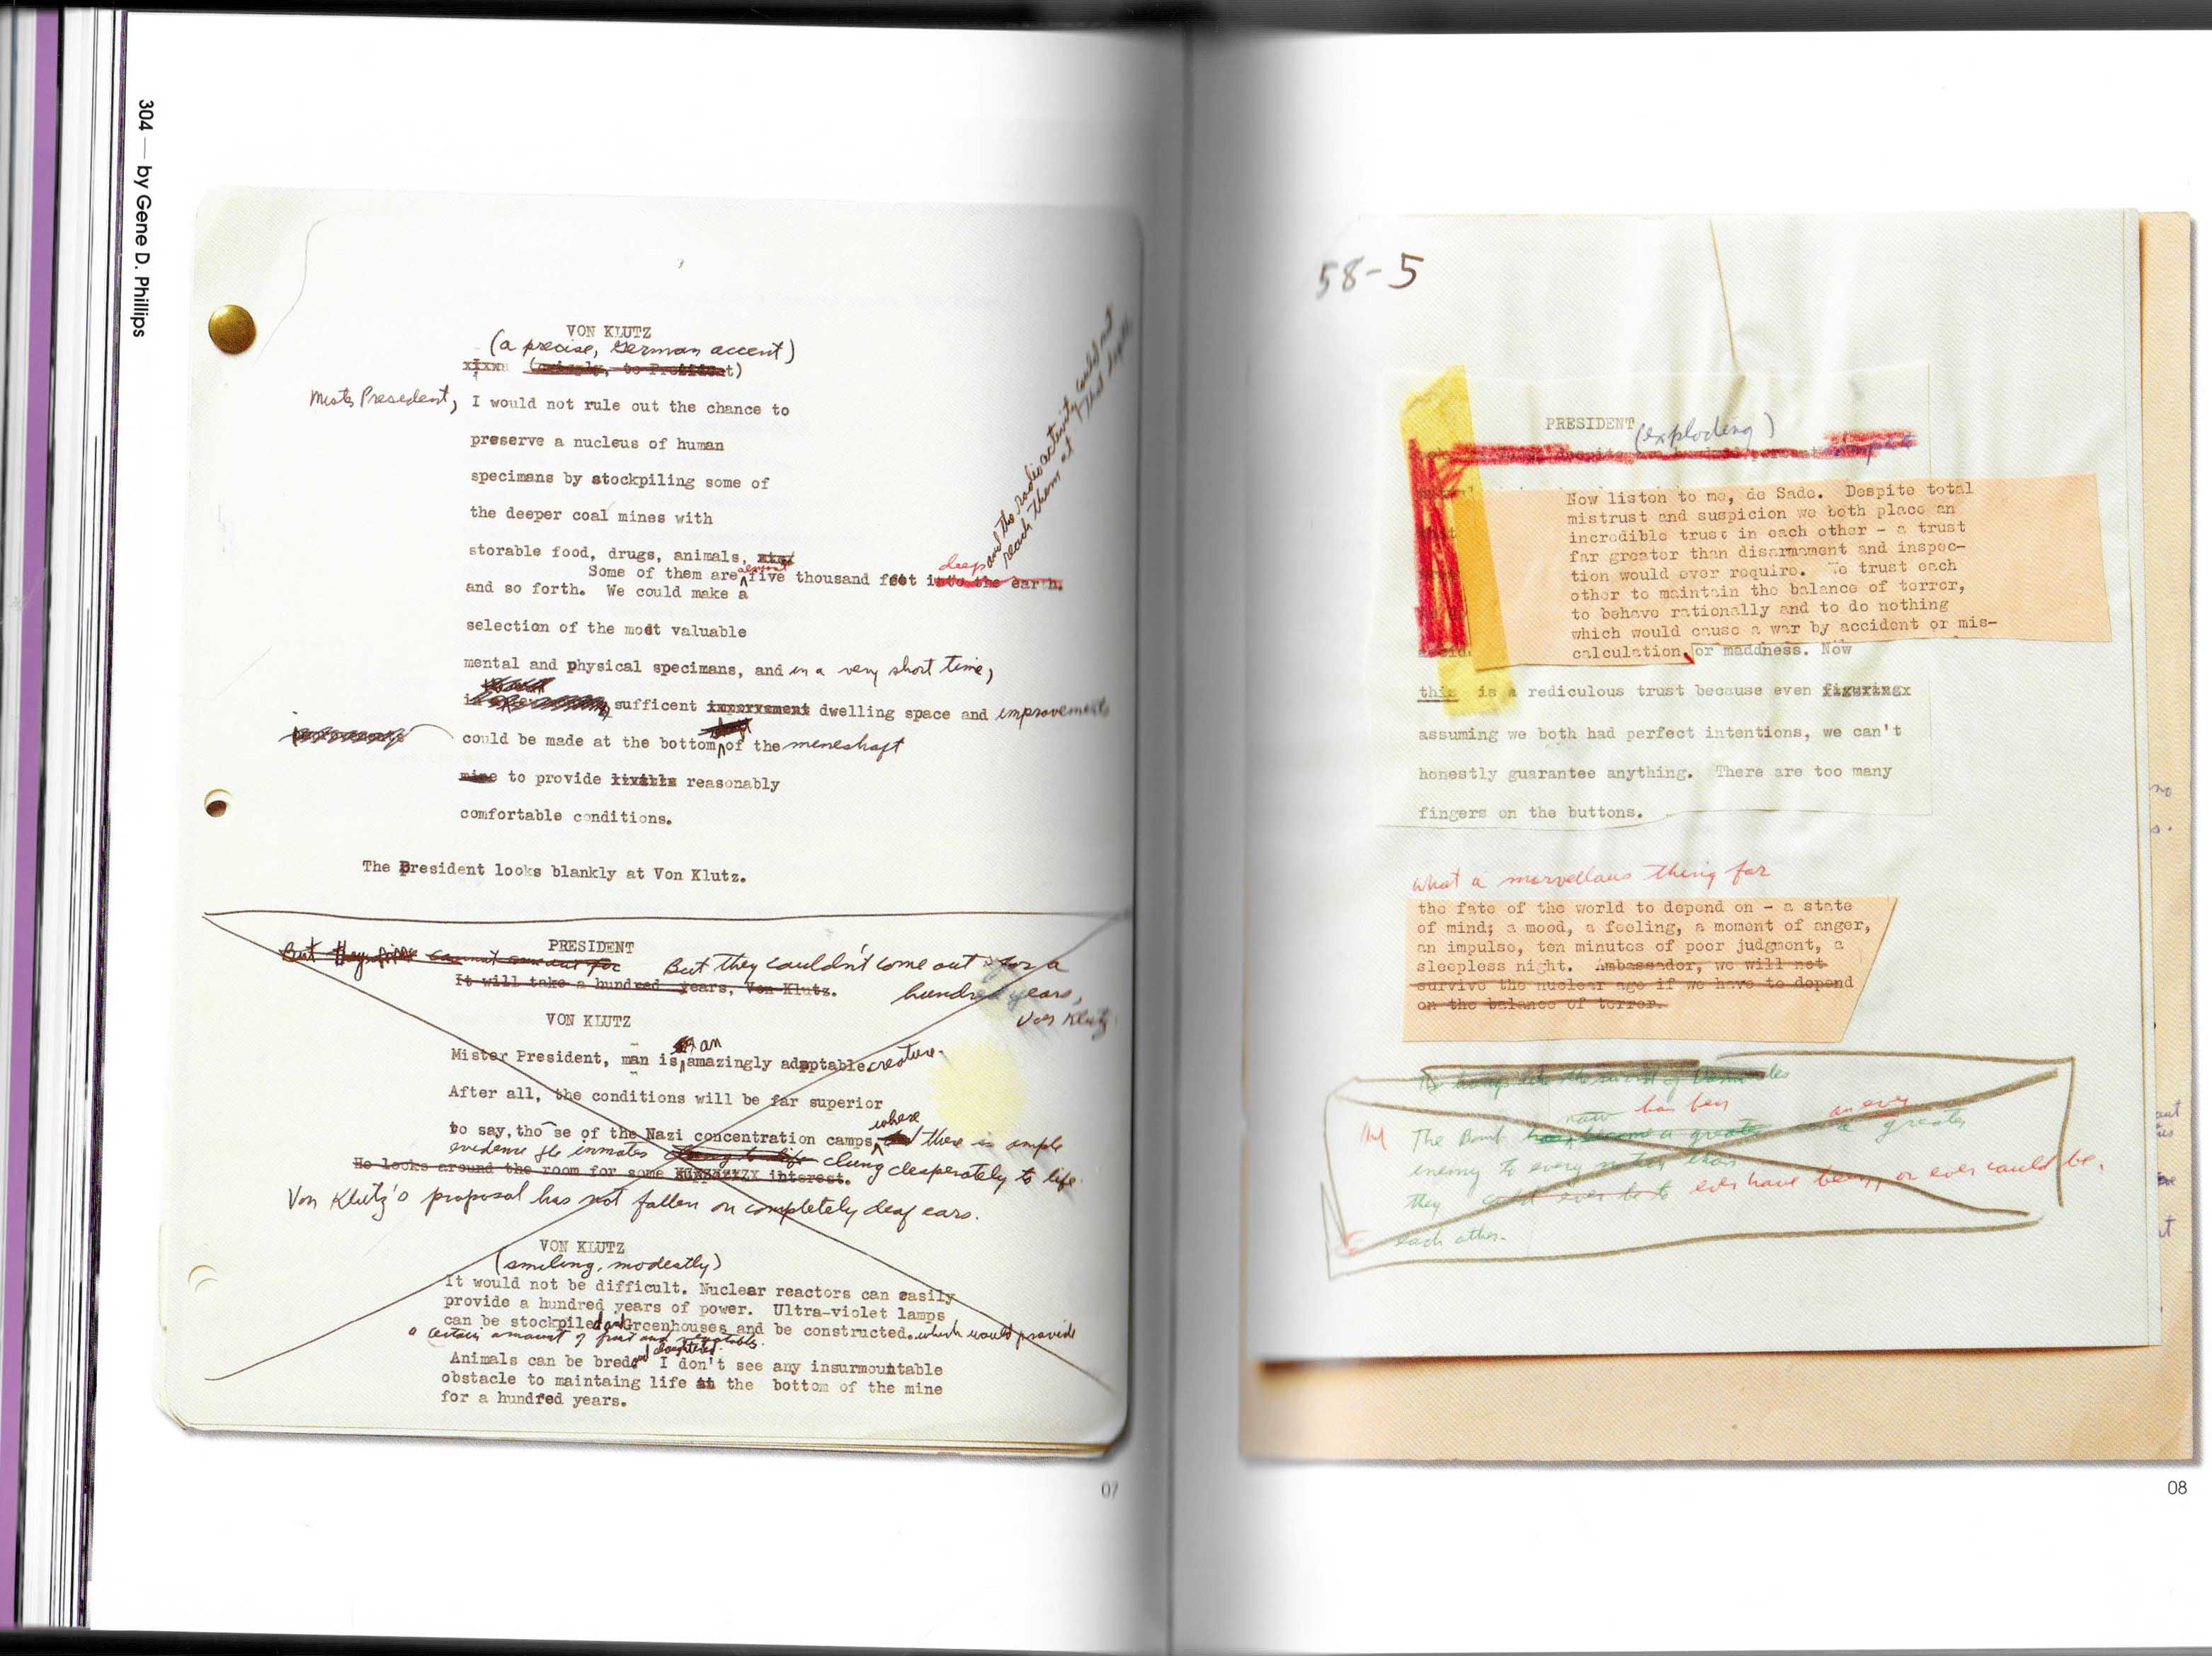 304 — by Gene D. Phillips
VON KLUTZ
(a precise, German accent)
to President)
Mister President, I would not rule out the chance to
preserve a nucleus of human
specimans by stockpiling some of
the deeper coal mines with
storable food, drugs, animals,
Some of them are almost five thousand feet deep into the earth.
and the radioactivity could not
reach them at that depth
and so forth. We could make a
selection of the most valuable
mental and physical specimans, and in a very short time,
sufficent improvement dwelling space and improvements
could be made at the bottom of the mineshaft
mine to provide reasonably
comfortable conditions.
The President looks blankly at Von Klutz.
PRESIDENT
But they cannot come out for But they couldn't come out for a
It will take a hundred years, Von Klutz. hundred years,
Von Klutz
VON KLUTZ
Mister President, man is an amazingly adaptable creature.
After all, the conditions will be far superior
to say, those of the Nazi concentration camps, where there is ample
evidence the inmates clung to life clung desperately to life.
He looks around the room for some interest.
Von Klutz's proposal has not fallen on completely deaf ears.
VON KLUTZ
(smiling, modestly)
It would not be difficult. Nuclear reactors can easily
provide a hundred years of power. Ultra-violet lamps
can be stockpiled and Greenhouses and be constructed. which would provide
a certain amount of fruit and vegetables.
Animals can be bred and slaughtered. I don't see any insurmountable
obstacle to maintaing life at the bottom of the mine
for a hundred years.
07
58-5
PRESIDENT (exploding)
Now listen to me, de Sade. Despite total
mistrust and suspicion we both place an
incredible trust in each other - a trust
far greater than disarmament and inspec-
tion would ever require. We trust each
other to maintain the balance of terror,
to behave rationally and to do nothing
which would cause a war by accident or mis-
calculation, or maddness. Now
this is a rediculous trust because even
assuming we both had perfect intentions, we can't
honestly guarantee anything. There are too many
fingers on the buttons.
What a marvellous thing for
the fate of the world to depend on - a state
of mind; a mood, a feeling, a moment of anger,
an impulse, ten minutes of poor judgment, a
sleepless night. Ambassador, we will not
survive the nuclear age if we have to depend
on the balance of terror.
It hangs like the sword of Damocles
now has been an even
The Bomb has become a greater a greater
enemy to every nation than
they could ever be to ever have been, or ever could be.
each other.
08